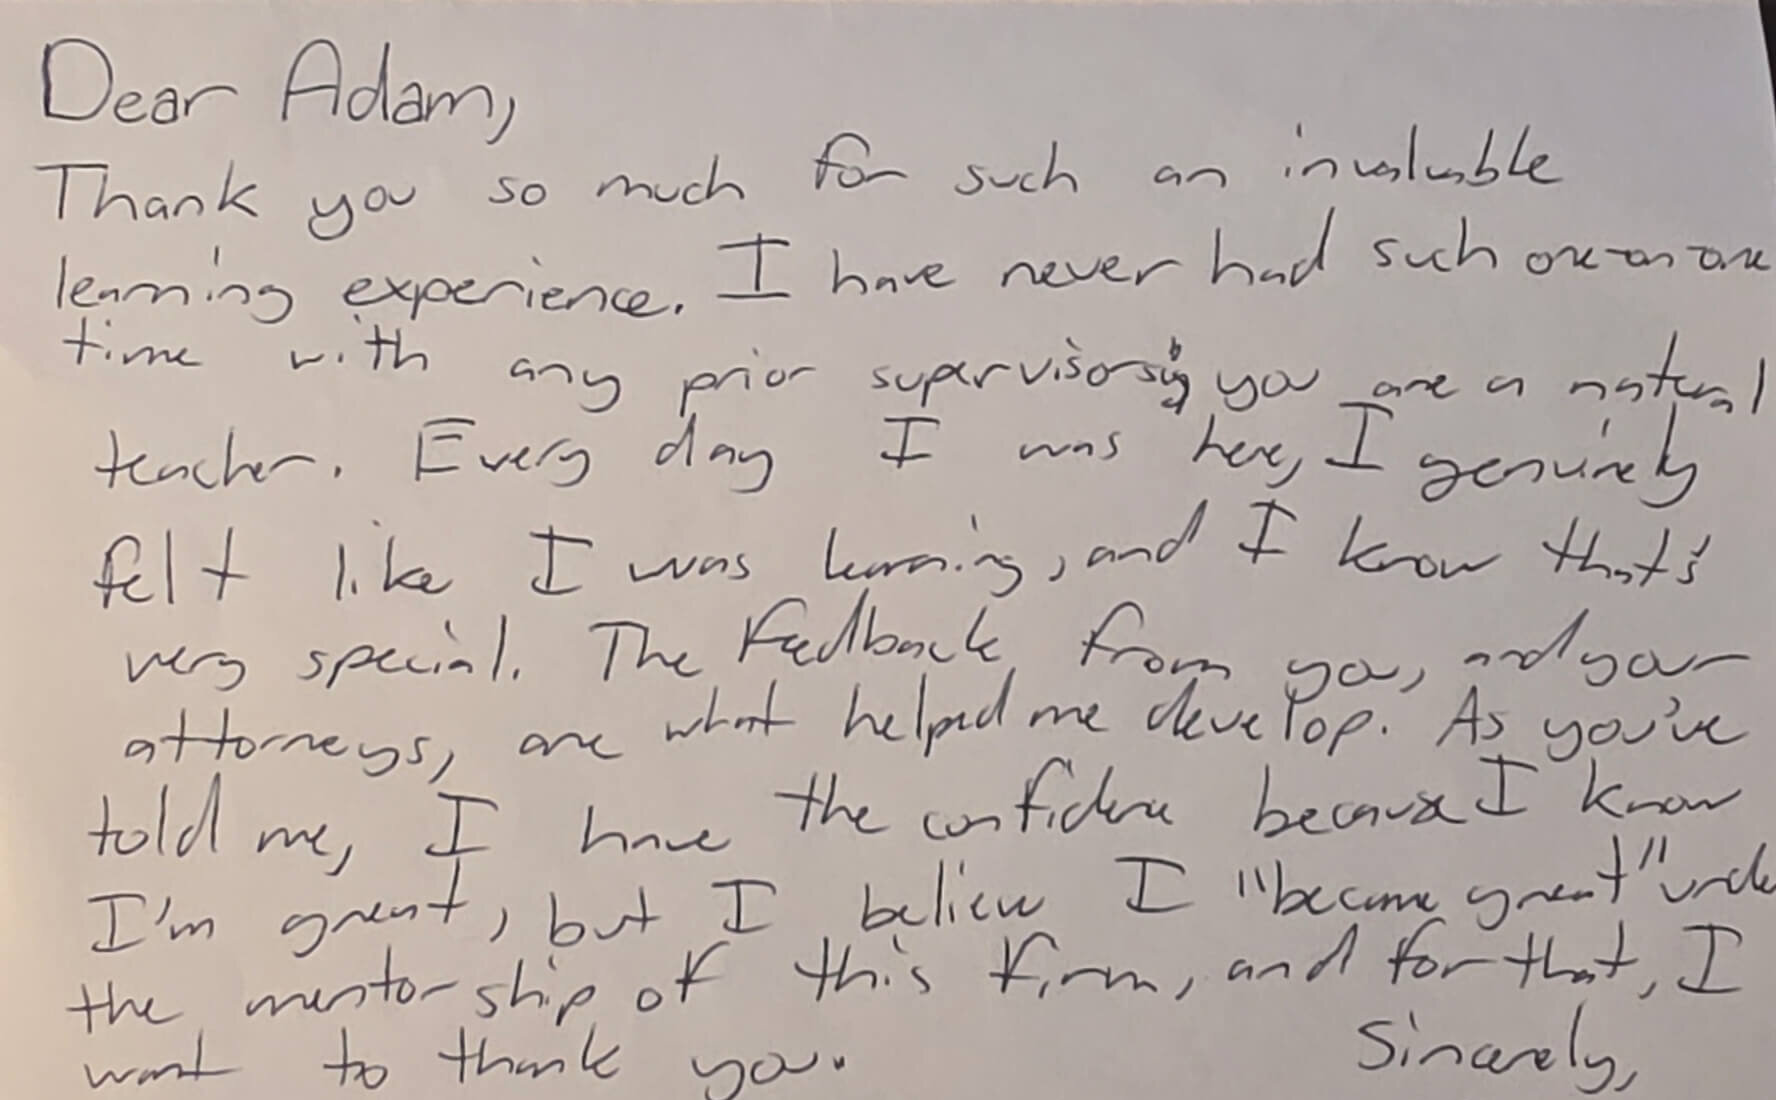 Dear Adam,
Thank you so much for such an invaluable
learning experience. I have never had such one-on-one
time with any prior supervisors; you are a natural
teacher. Every day I was here, I genuinely
felt like I was learning, and I know that's
very special. The feedback from you, and your
attorneys, are what helped me develop. As you've
told me, I have the confidence because I know
I'm great, but I believe I "became great" unde
the mentorship of this firm, and for that, I
want to thank you.
Sincerely,